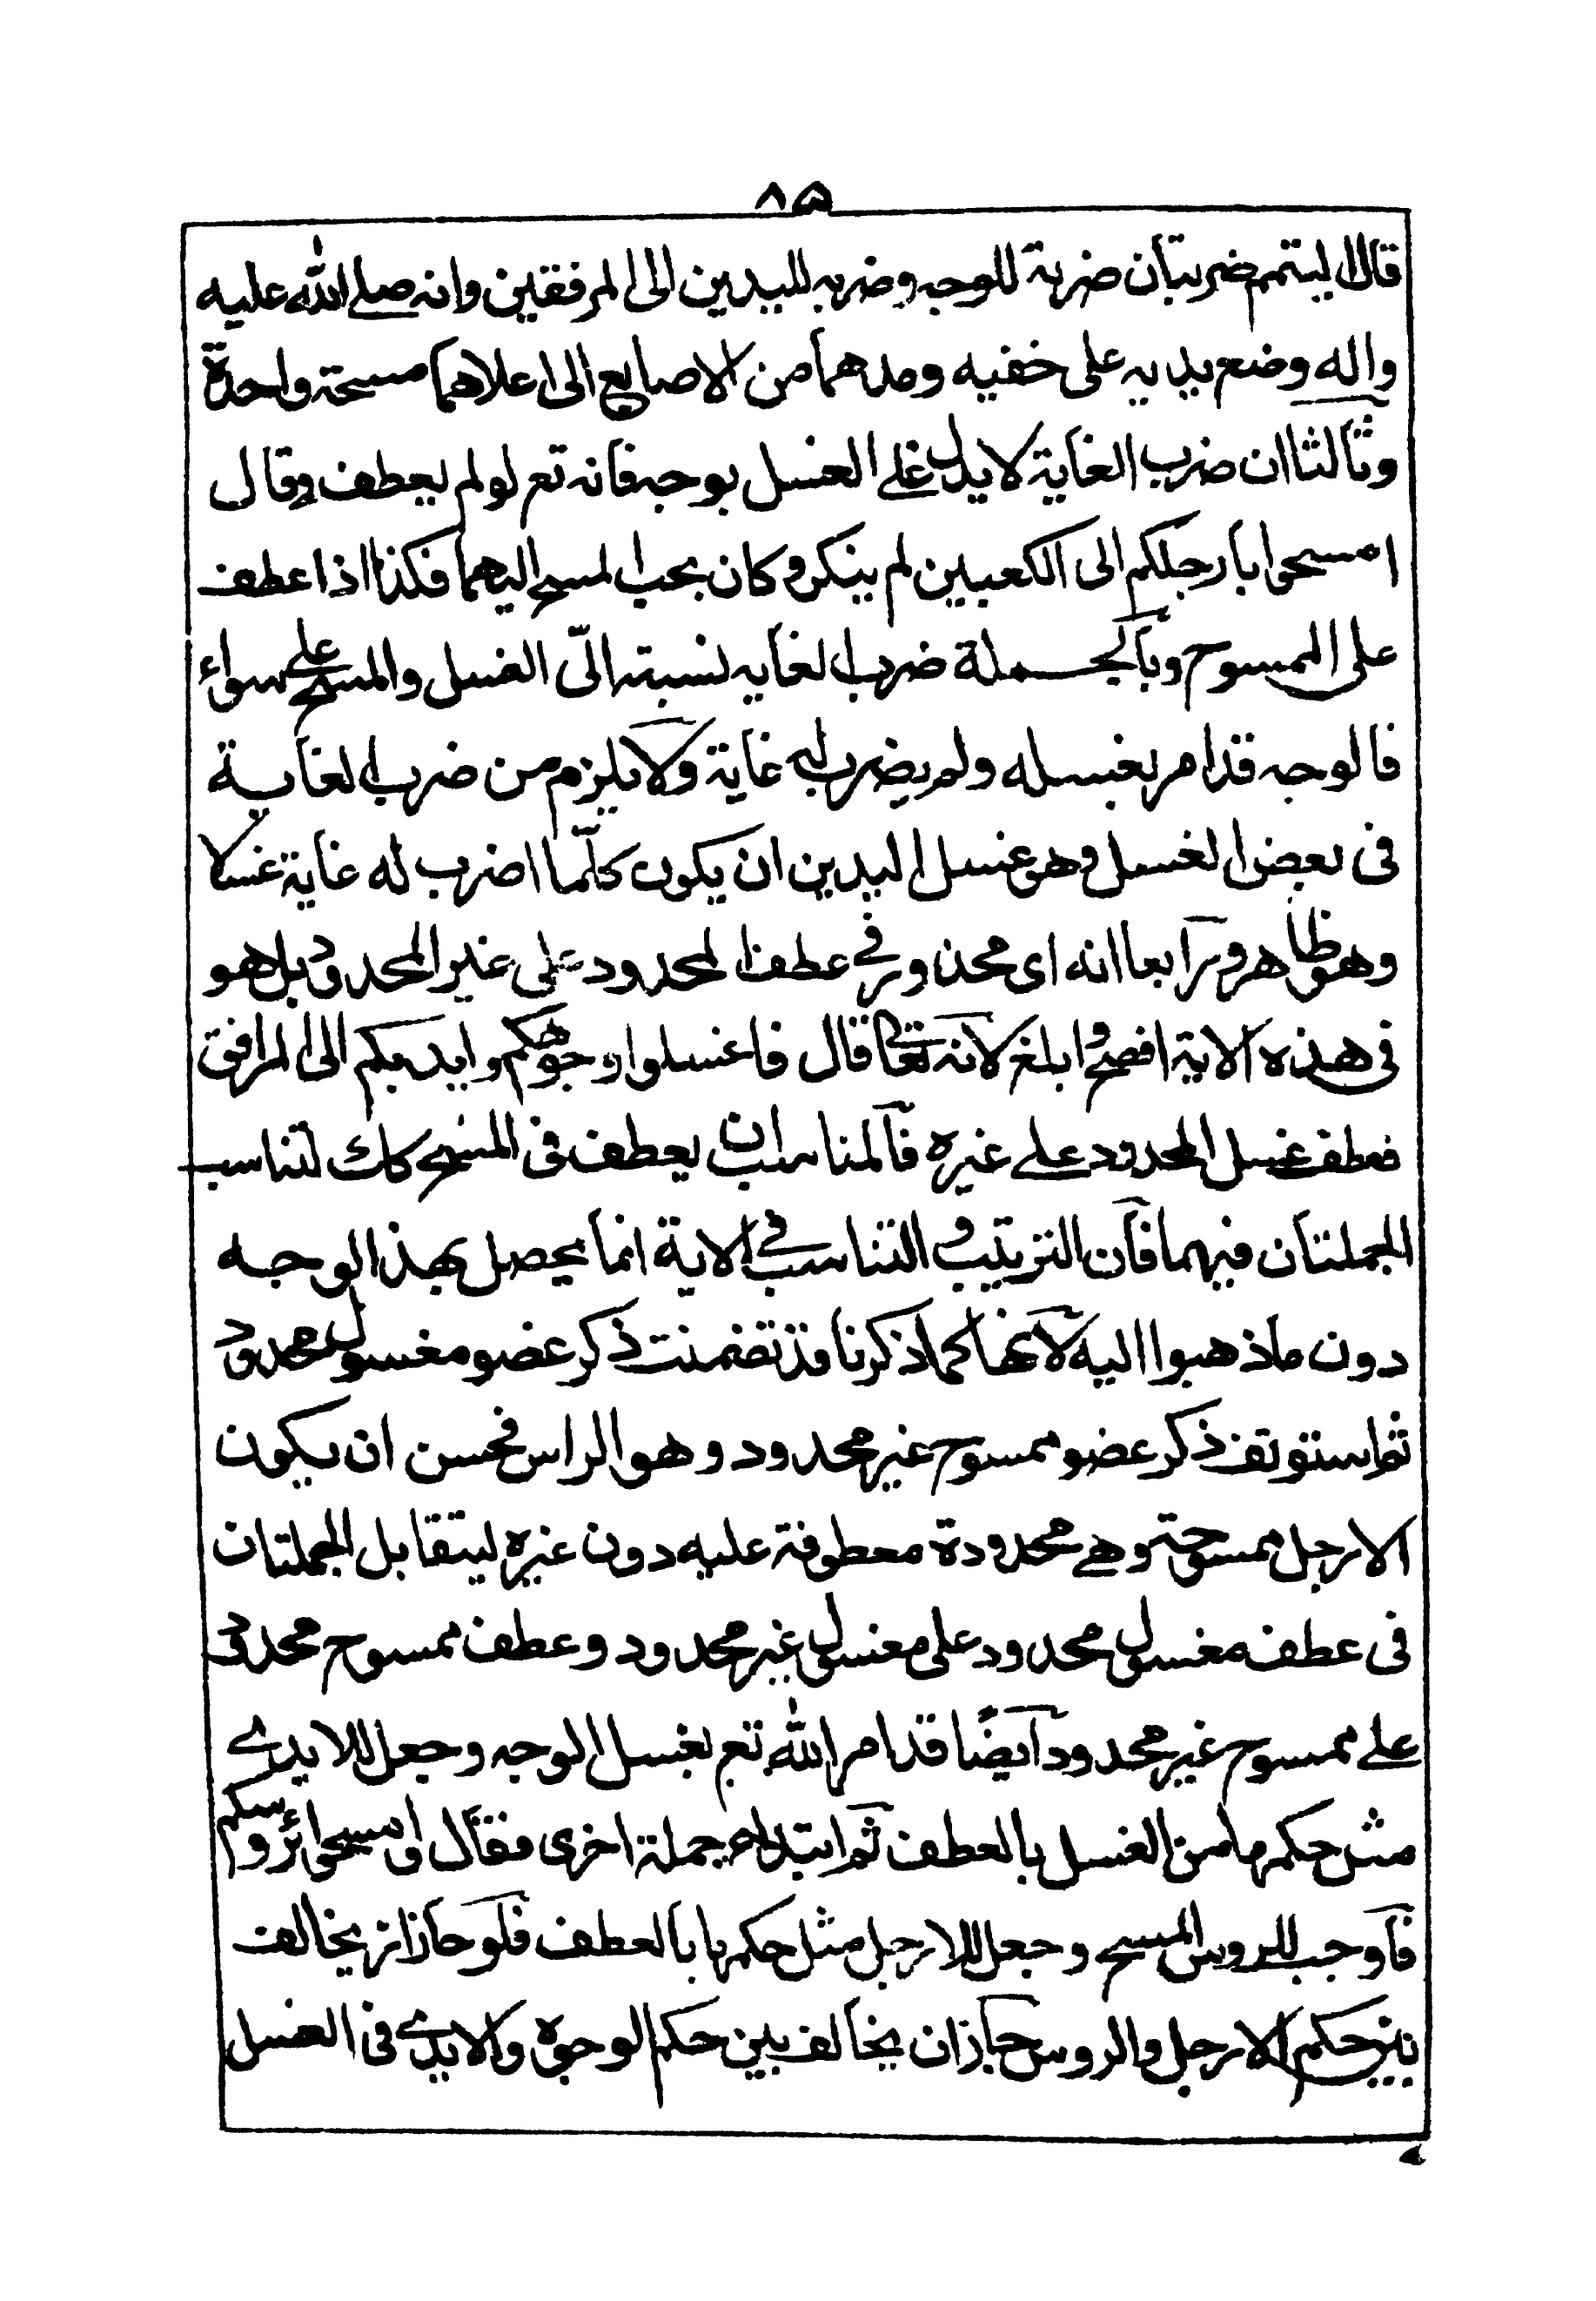 ٨٥
قال التيمم ضربتان ضربة للوجه وضربه لليدين الى المرفقين وانه صلى الله عليه
واله وضع يديه على خفيه ومدهما من الاصابع الى اعلاهما مسحة واحدة
وثالثا ان ضرب الغاية لا يدل على الغسل بوجه فانه تع لو لم يعطف وقال
امسحوا بارجلكم الى الكعبين لم ينكر وكان يجب المسح اليهما فكذا اذا عطف
على الممسوح وبالجملة ضرب الغايه نسبته الى الغسل والمسح على سواء
فالوجه قد امر بغسله ولم يضرب له غاية ولا يلزم من ضرب الغاية
فى بعض الغسل وهو غسل اليدين ان يكون كلما اضرب له غاية غسلا
وهو ظاهر ورابعا انه اى محذور فى عطف المحدود على غير المحدود بل هو
فى هذه الاية افصح وابلغ لانه تعالى قال فاغسلوا وجوهكم وايديكم الى المرافق
فعطف غسل المحدود على غيره فالمناسب ان يعطف فى المسح كك لتناسب
الجملتان فيهما فان الترتيب والتناسب فى الاية انما يحصل بهذا الوجه
دون ما ذهبوا اليه لانها كما ذكرنا قد تضمنت ذكر عضو مغسول محدود
ثم استوتف ذكر عضو ممسوح غير محدود وهو الراس فحسن ان يكون
الارجل ممسوحة وهى محدودة معطوفة عليه دون غيره ليتقابل الجملتان
فى عطف مغسول محدود على مغسول غير محدود وعطف ممسوح محدود
على ممسوح غير محدود ايضا قد امر الله تع بغسل الوجه وجعل للايدى
مثل حكمها من الغسل بالعطف ثم ابتداء جملة اخرى فقال وامسحوا برؤسكم
فاوجب للروس المسح وجعل للارجل مثل حكمها بالعطف فلو جاز ان يخالف
بين حكم الارجل والروس جاز ان يخالف بين حكم الوجوه والايدى فى الغسل